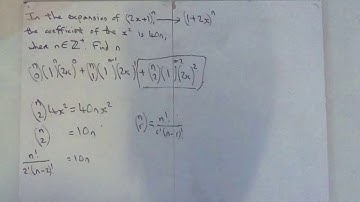 In the expansion of (2x+1)^n, → (1+2x)^n
the coefficient of the x² is 40n,
where n∈ℤ⁺. Find n
(n 0)(1)^n(2x)^0 + (n 1)(1)^(n-1)(2x)^1 + (n 2)(1)^(n-2)(2x)^2
(n 2)4x² = 40nx²
(n 2) = 10n
n!/2!(n-2)! = 10n
(n r) = n!/r!(n-r)!